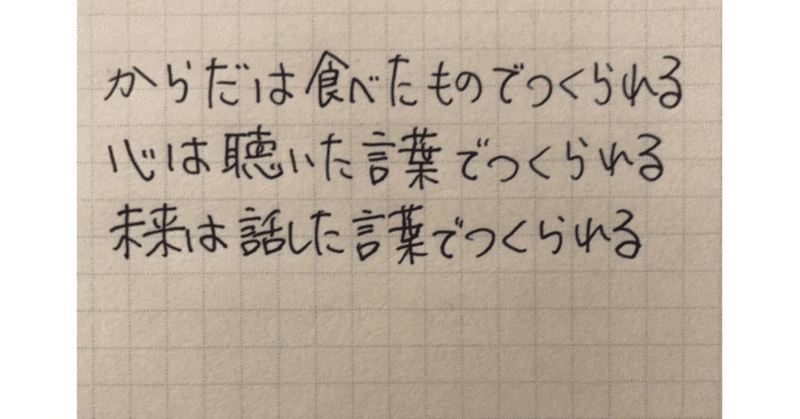 からだは食べたものでつくられる
心は聴いた言葉でつくられる
未来は話した言葉でつくられる